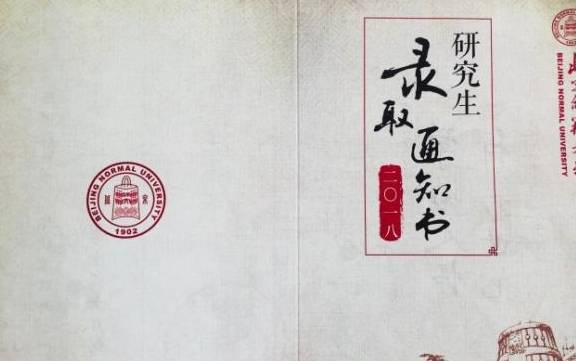 研究生
录取
通知书
二〇一八
BEIJING NORMAL UNIVERSITY
1902
BEIJING NORMAL UNIVERSITY